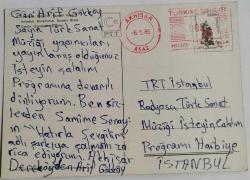 Can Arif Gökköy
Sayın Türk Sanat
Müziği yayıncıları
yayınlamış olduğunuz
İsteyin Çalalım
Programına devamlı
dinliyorum. Ben siz-
lerden Samime Sanay-
ın Hatırla Sevgilim
adlı şarkıyı çalmanızı ri-
ca ediyorum. Akhisar
Dereköyden Arif Gökköy
PTT
AKHİSAR
6.5.85
TÜRKİYE
TRT İstanbul
Radyosu Türk Sanat
Müziği İsteyin Çalalım
Programı Harbiye
İSTANBUL